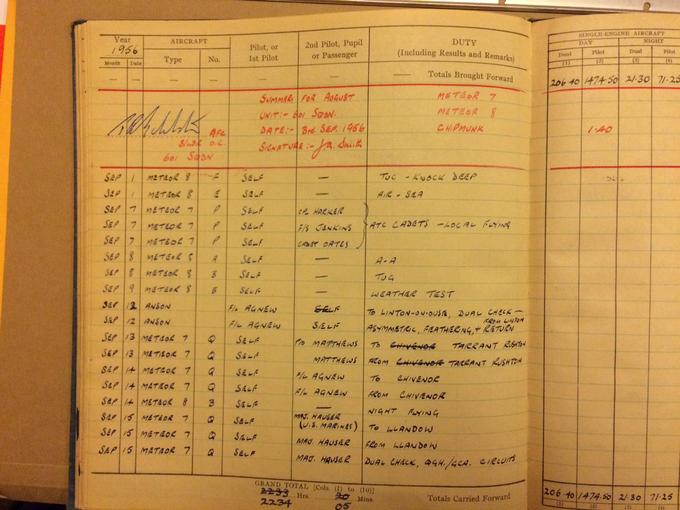 Year AIRCRAFT Pilot, or 2nd Pilot, Pupil DUTY
1956 1st Pilot or Passenger (Including Results and Remarks)
Month Date Type No.
— — — — — — — Totals Brought Forward
SUMMARY FOR AUGUST METEOR 7
UNIT:- 601 SQDN. METEOR 8
AFC DATE:- 3RD SEP. 1956 CHIPMUNK
S/LDR O.C. SIGNATURE:-
601 SQDN
SEP 1 METEOR 8 F SELF — TUG - KNOCK DEEP
SEP 1 METEOR 8 E SELF — AIR - SEA
SEP 7 METEOR 7 P SELF CPL HARKER
SEP 7 METEOR 7 P SELF F/S JENKINS ATC CADETS - LOCAL FLYING
SEP 7 METEOR 7 P SELF CADET OATES
SEP 8 METEOR 8 A SELF — A-A
SEP 8 METEOR 8 B SELF — TUG
SEP 9 METEOR 8 SELF — WEATHER TEST
SEP 12 ANSON F/L AGNEW SELF TO LINTON-ON-OUSE, DUAL CHECK —
FROM LINTON
SEP 12 ANSON F/L AGNEW SELF ASYMMETRIC, FEATHERING, + RETURN
SEP 13 METEOR 7 Q SELF P/O MATTHEWS TO CHIVENOR TARRANT RUSHTON
SEP 13 METEOR 7 Q SELF MATTHEWS FROM CHIVENOR TARRANT RUSHTON
SEP 14 METEOR 7 Q SELF F/L AGNEW TO CHIVENOR
SEP 14 METEOR 7 Q SELF F/L AGNEW FROM CHIVENOR
SEP 14 METEOR 8 B SELF — NIGHT FLYING
SEP 15 METEOR 7 Q SELF MAJ. HAUSER (U.S. MARINES) TO LLANDOW
SEP 15 METEOR 7 Q SELF MAJ. HAUSER FROM LLANDOW
SEP 15 METEOR 7 Q SELF MAJ. HAUSER DUAL CHECK, QGH./GCA. CIRCUITS
GRAND TOTAL [Cols. (1) to (10)]
2233 Hrs. 20 Mins. Totals Carried Forward
2234 05
SINGLE-ENGINE AIRCRAFT
DAY NIGHT
Dual Pilot Dual Pilot
(1) (2) (3) (4)
206.40 1474.50 21.30 71.25
1.40
206.40 1474.50 21.30 71.25
(1) (2) (3) (4)